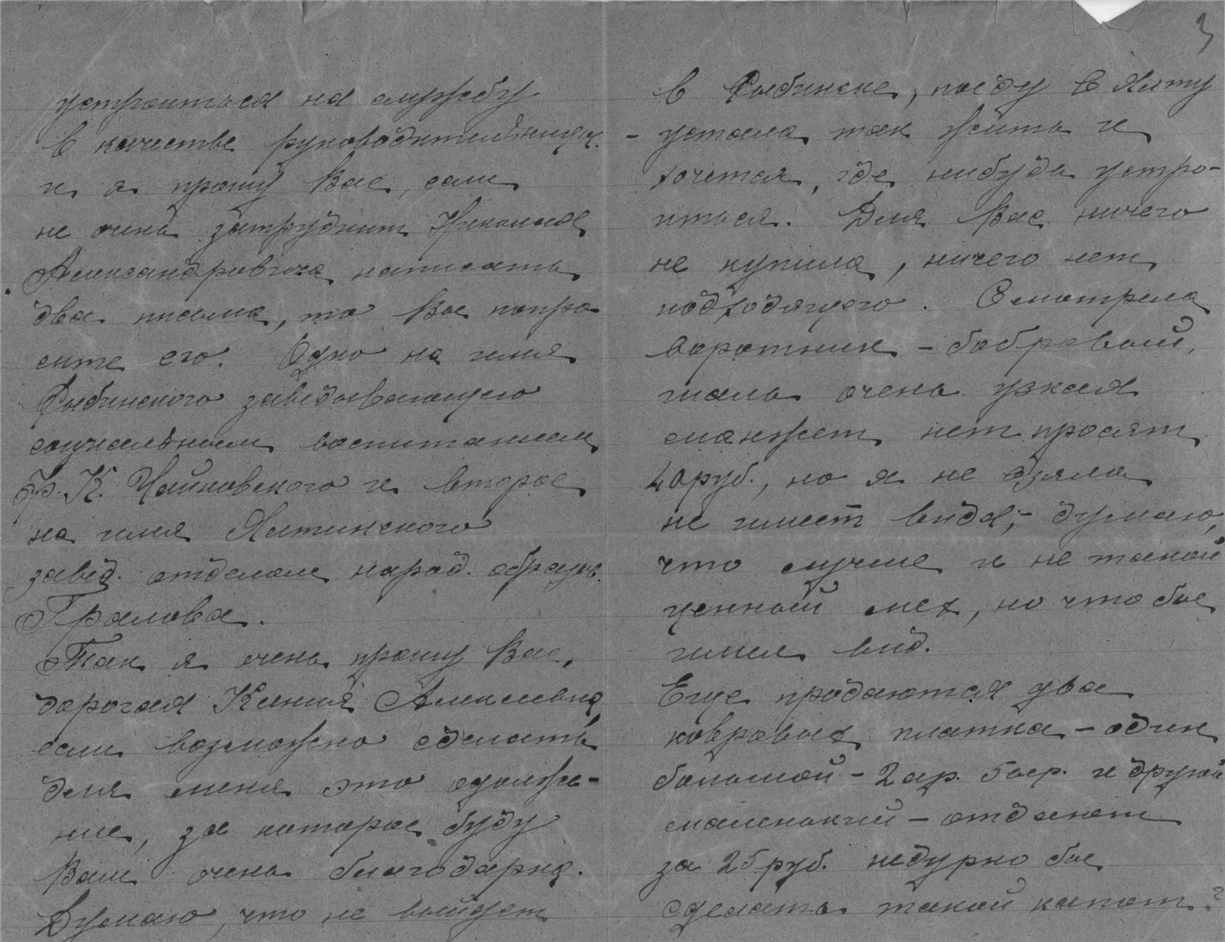 устроиться на службу
в качестве руководительницы.
и я прошу Вас, если
не очень затруднит Николая
Александровича написать
два письма, то Вы попро
сите его. Одно на имя
Рыбинского заведывающего
социальным воспитанием
Ф. К. Чайковского и второе
на имя Ялтинского
завед. отделом народ. образов.
Гралова.
Так я очень прошу Вас,
дорогая Ксения Алексеевна,
если возможно сделать
для меня это одолже-
ние, за которое буду
Вам очень благодарна.
Думаю, что не выйдет
3
в Рыбинске, поеду в Ялту
- устала так жить и
хочется, где нибудь устро-
иться. Для Вас ничего
не купила, ничего нет
подходящего. Смотрела
воротник - бобровый,
шаль очень узкая
манжет нет просят
40 руб., но я не взяла
не имеет вида; - думаю,
что лучше и не такой
ценный мех, но что бы
имел вид.
Еще продаются два
ковровых платка - один
большой - 2 ар. 5 вер. и другой
маленький - отдают
за 25 руб. недурно бы
сделать такой капот?